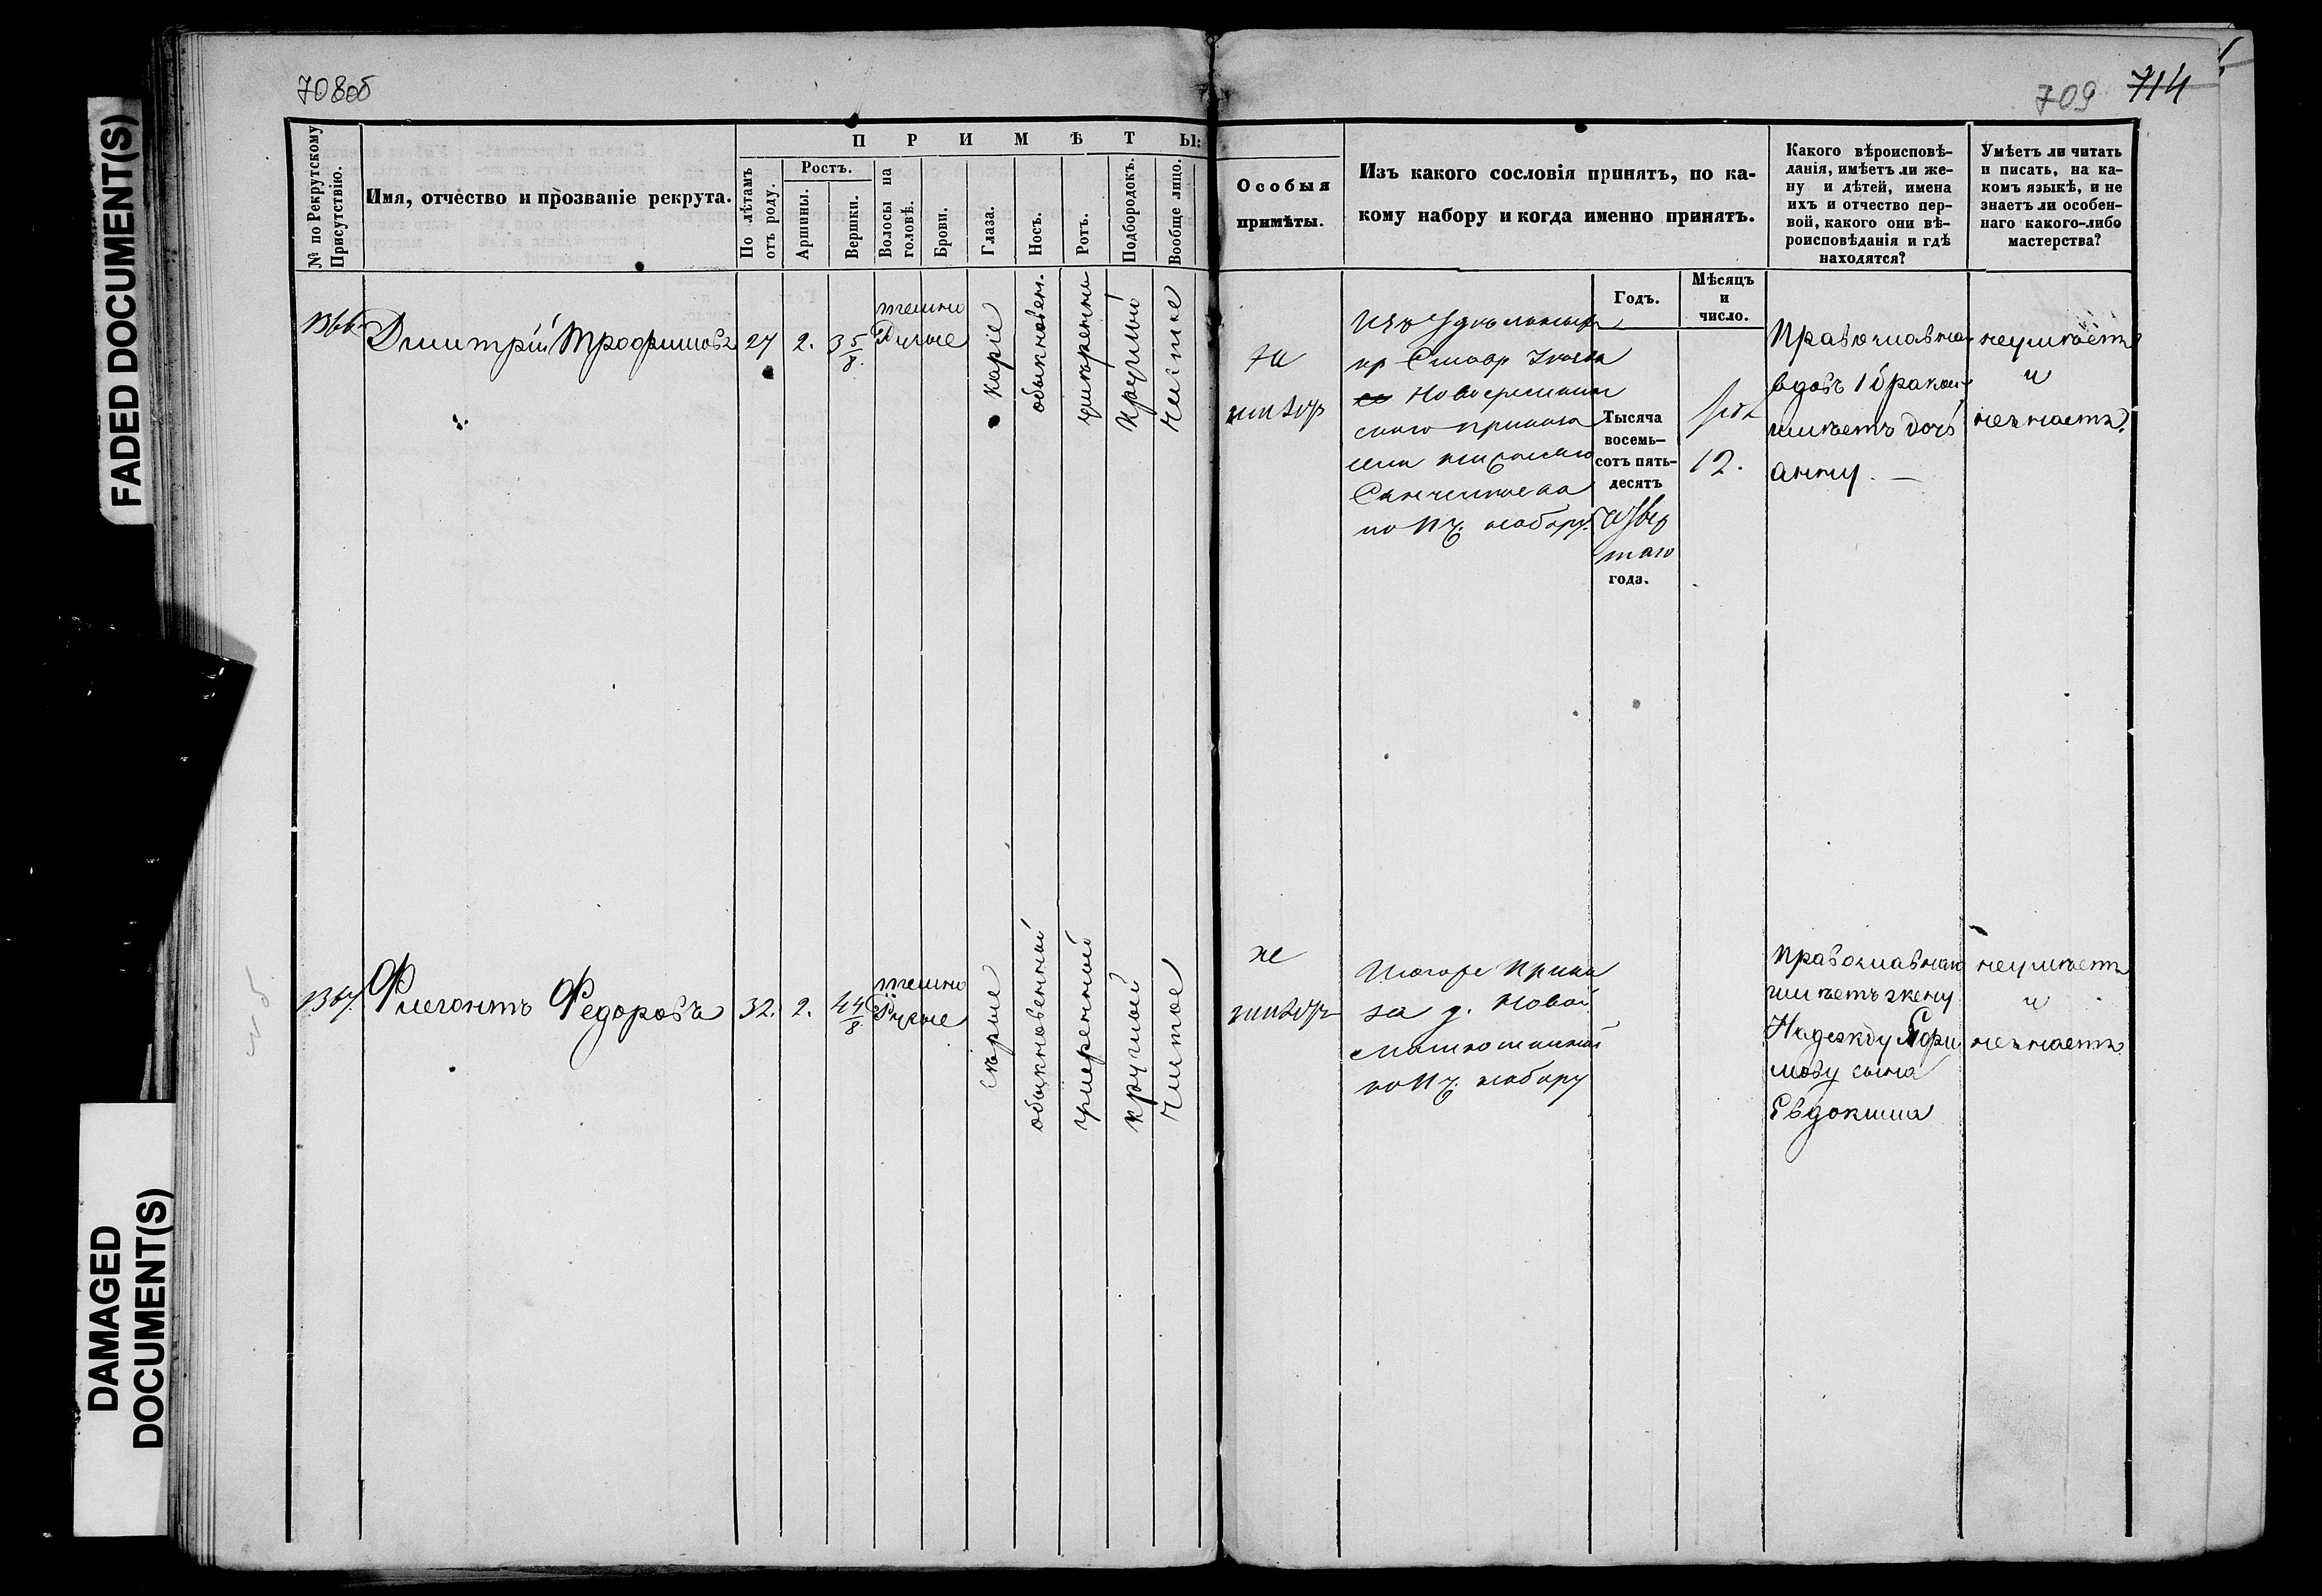 FADED DOCUMENT(S)
DAMAGED
DOCUMENT(S)
708об
709 714
№ по Рекрутскому
Присутствію.
Имя, отчество и прозваніе рекрута.
ПРИМѢТЫ:
По лѣтамъ
отъ роду.
Ростъ.
Аршины.
Вершки.
Волосы на
головѣ.
Брови.
Глаза.
Носъ.
Ротъ.
Подбородокъ.
Вообще лицо.
Особыя
примѣты.
Изъ какого сословія принятъ, по ка-
кому набору и когда именно принятъ.
Годъ.
Мѣсяцъ
и
число.
Какого вѣроисповѣ-
данія, имѣетъ ли же-
ну и дѣтей, имена
ихъ и отчество пер-
вой, какого они вѣ-
роисповѣданія и гдѣ
находятся?
Умѣетъ ли читать
и писать, на ка-
комъ языкѣ, и не
знаетъ ли особен-
наго какого-либо
мастерства?
1366
Дмитрій Трофимовъ
27
2.
3 5/8.
темно
Русые
Каріе
обыкновен.
умѣренный
круглый
чистое
не
имѣетъ
Изъ Удѣльныхъ
кр Ставр Уѣзда
скаго приказа
по Нч. набору.
Тысяча
восемь-
сотъ пять-
десятъ
четвер
таго
года.
12.
Православнаго
вдовъ 1 бракомъ
имѣетъ дочь
анну. —
неумѣетъ
и
незнаетъ.
1367.
Флегонтъ Федоровъ
32.
2.
4 4/8
темно
Русые
сѣрые
обыкновенный
умеренный
круглый
чистое
не
имѣетъ
тогоже Прика
за д. Новой
по Нч. набору
православнаго
имѣетъ жену
Надежду Ефи
мову сына
Евдокима
неумѣетъ
и
незнаетъ